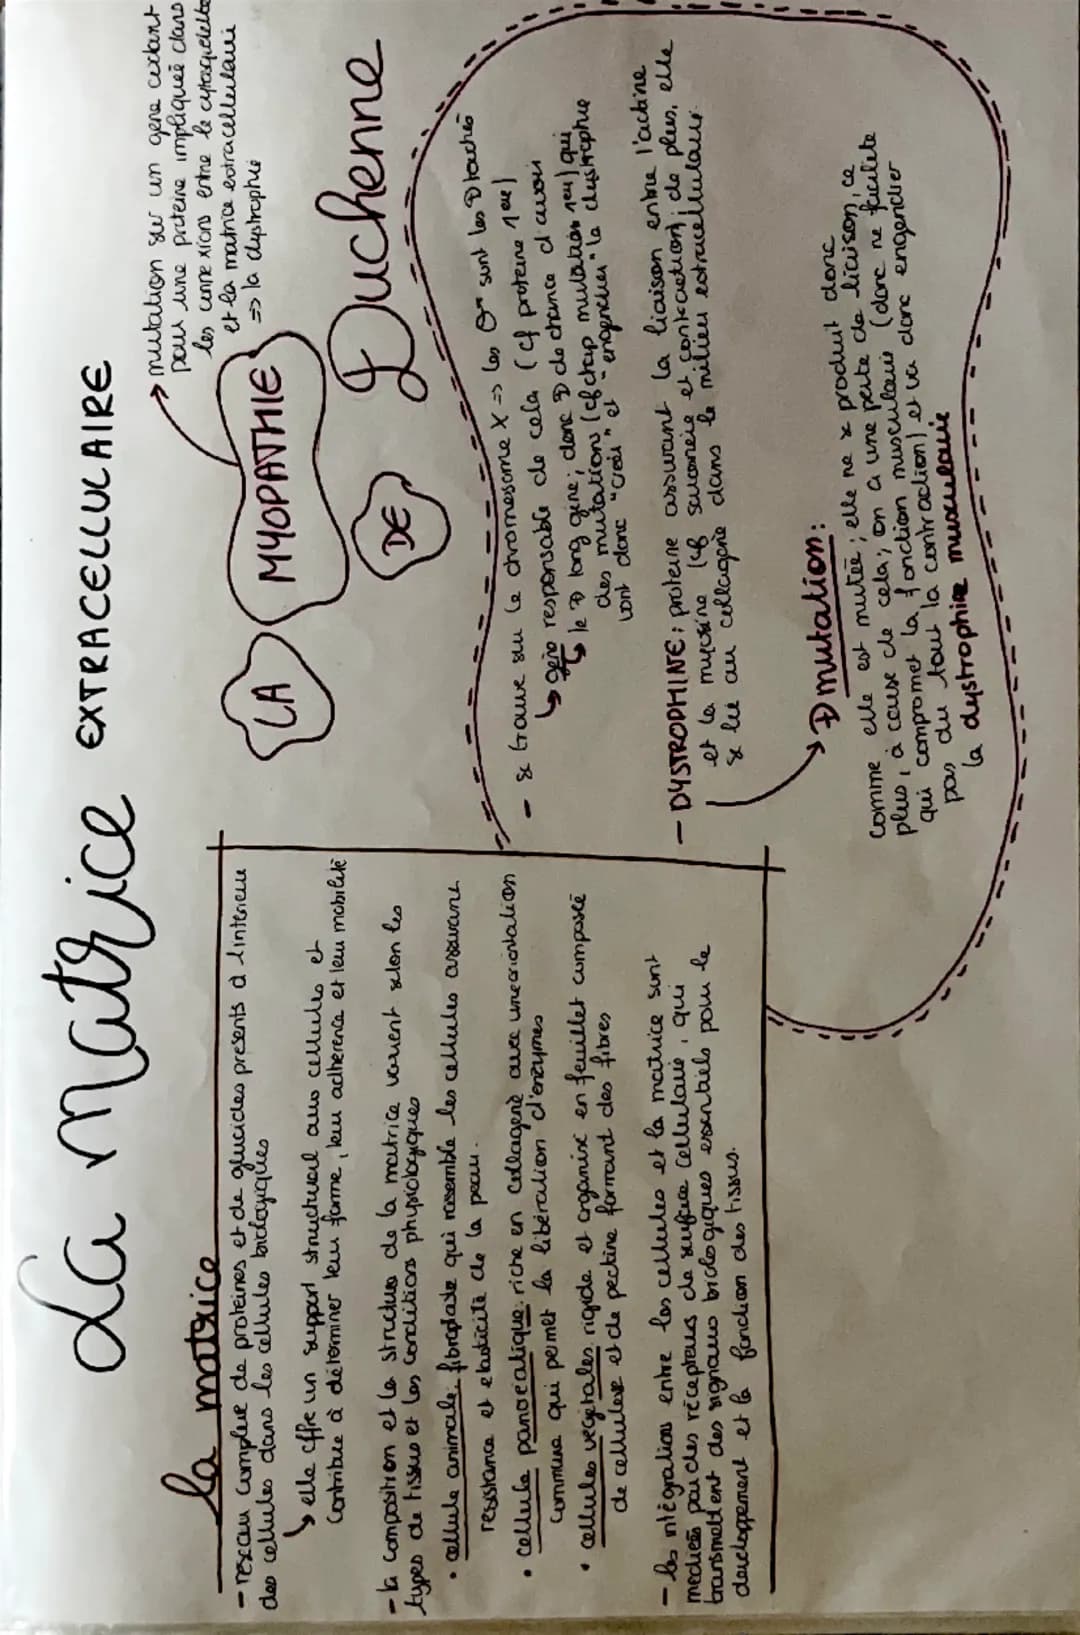 La matrice EXTRACELLULAIRE
la matrice
- reseau complexe de proteines et de glucides presents à l'interieur
des cellules dans les cellules biologiques
↳ elle offre un support structural aux cellules et
contribue à déterminer leur forme, leur adherence et leur mobilité
- la composition et la structure de la matrice varient selon les
types de tissus et les conditions physiologiques
• cellule animale: fibroplaste qui rassemble les cellules assurant
resistance et elasticité de la peau.
• cellule pancréatique: riche en collagenè avec une orientation
commune qui permet la libération d'enzymes
• cellules vegetales: rigide et organisé en feuillet composée
de cellulose et de pectine formant des fibres
- les intégrations entre les cellules et la matrice sont
mediées par des récepteurs de surface cellulaire, qui
transmettent des signaux biologiques essentiels pour le
developpement et la fonction des tissus.
LA
MYOPATHIE
DE
Duchenne
mutation sur un gene codant
pour une proteine impliquée dans
les connexions entre le cytosquelette
et la matrice extracellulaire
=> la dystrophie
- se trouve sur le chromosome X => les ♂ sont les ⊕ touchés
↳ gène responsable de cela (cf proteine 1ere)
↳ le ⊕ long gène; donc ⊕ de chance d'avoir
des mutations (cf chap mutation 1ere) qui
vont donc "créer" et "engendrer" la dystrophie
- DYSTROPHINE: proteine assurant la liaison entre l'actine
et la myosine (cf sarcomère et contraction) de plus, elle
se lie au collagène dans le milieu extracellulaire
⊕ mutation:
comme elle est mutée; elle ne se produit donc
plus, à cause de cela; on a une perte de liaison, ce
qui compromet la fonction musculaire (donc ne facilite
pas du tout la contraction) et va donc engendrer
la dystrophie musculaire